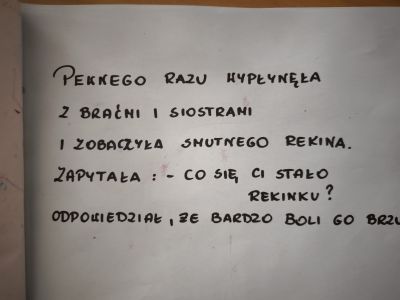 PEWNEGO RAZU WYPŁYNĘŁA
Z BRAĆMI I SIOSTRAMI
I ZOBACZYŁA SMUTNEGO REKINA.
ZAPYTAŁA : - CO SIĘ CI STAŁO
REKINKU?
ODPOWIEDZIAŁ, ŻE BARDZO BOLI GO BRZU